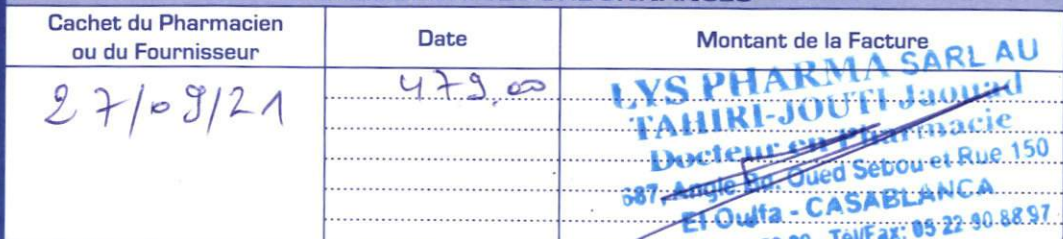 Cachet du Pharmacien
ou du Fournisseur
Date
Montant de la Facture
27/09/21
479,00
LYS PHARMA SARL AU
TAHIRI-JOUTI Jaouad
Docteur en Pharmacie
687, Angle Bd. Oued Sebou et Rue 150
El Oulfa - CASABLANCA
Tel/Fax: 05 22 90 88 97